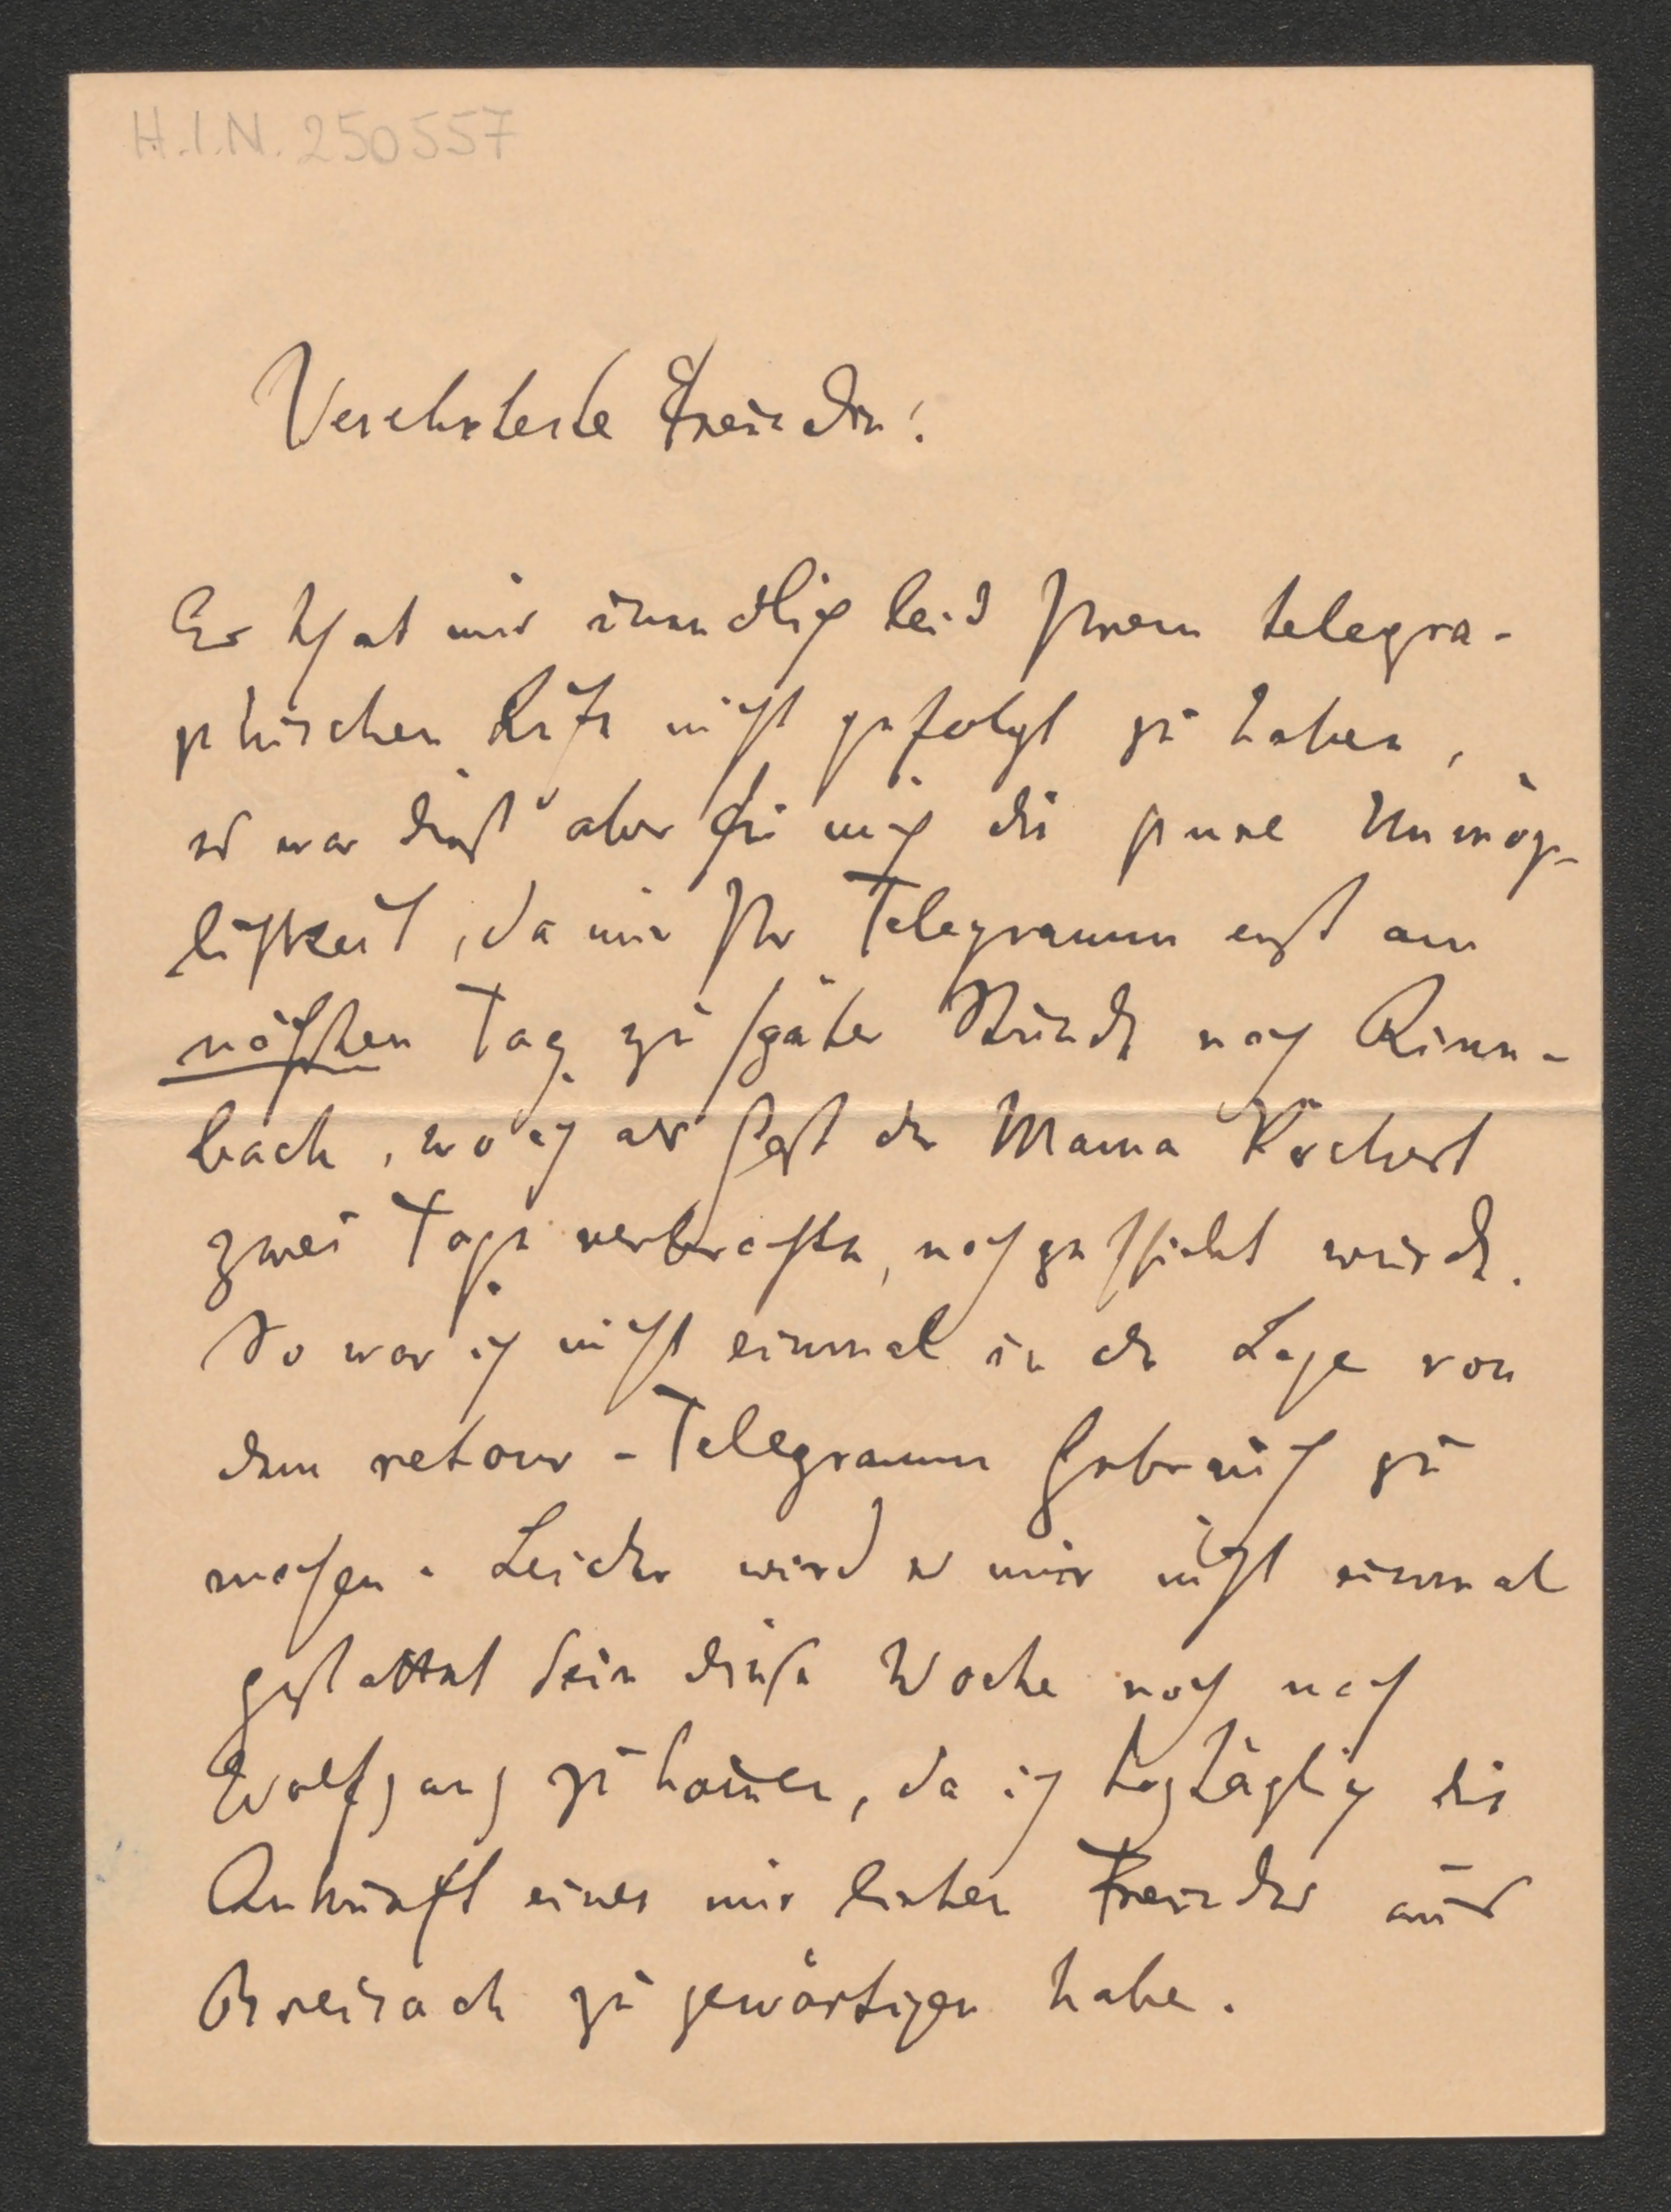 H.I.N. 250557
Verehrteste Freundin!
Es that mir unendlich leid Ihrem telegra-
phischen Rufe nicht gefolgt zu haben,
es war dieß aber für mich die pure Unmög-
lichkeit, da mir Ihr Telegramm erst am
nächsten Tag zu später Stunde nach Rinn-
bach, wo ich als Gast der Mama Köchert
zwei Tage verbrachte, nachgeschickt wurde.
So war ich nicht einmal in der Lage von
dem retour-Telegramm Gebrauch zu
machen. Leider wird es mir nicht einmal
gestattet sein diese Woche noch nach
Wolfgang zu kommen, da ich tagtäglich die
Ankunft eines mir lieben Freundes aus
Breisach zu gewärtigen habe.